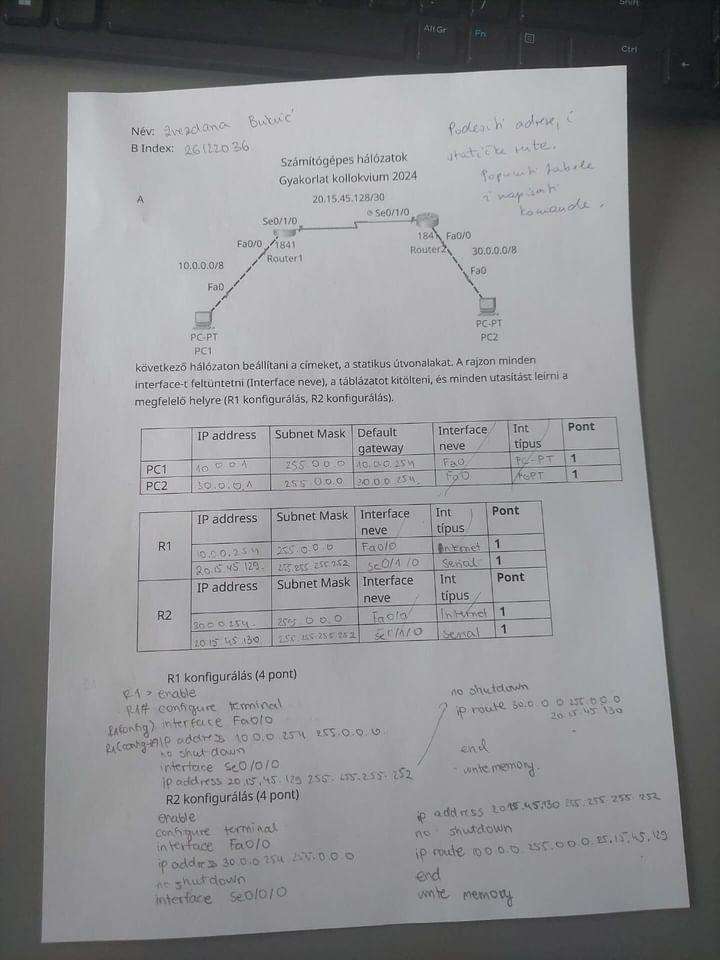 Alt Gr
Fn
Shift
Ctrl
Név: Zvezdana
B Index: 26122036
Podesiti adrese, i
statičke rute.
Popuniti tabele
i napisati
komande.
Számítógépes hálózatok
Gyakorlat kollokvium 2024
A
20.15.45.128/30
Se0/1/0
Se0/1/0
Fa0/0
1841
Router1
1841
Router2
Fa0/0
10.0.0.0/8
30.0.0.0/8
Fa0
Fa0
PC-PT
PC1
PC-PT
PC2
következő hálózaton beállítani a címeket, a statikus útvonalakat. A rajzon minden
interface-t feltüntetni (Interface neve), a táblázatot kitölteni, és minden utasítást leírni a
megfelelő helyre (R1 konfigurálás, R2 konfigurálás).
IP address Subnet Mask Default gateway Interface neve Int típus Pont
PC1 10.0.0.1 255.0.0.0 10.0.0.254 Fa0 PC-PT 1
PC2 30.0.0.1 255.0.0.0 30.0.0.254 Fa0 1
R1 IP address Subnet Mask Interface neve Int típus Pont
10.0.0.254 255.0.0.0 Fa0/0 Internet 1
20.15.45.129. 255.255.255.252 Se0/1/0 Serial 1
R2 IP address Subnet Mask Interface neve Int típus Pont
30.0.0.254. 255.0.0.0 Fa0/0 Internet 1
20.15.45.130 255.255.255.252 Se0/1/0 Serial 1
R1 konfigurálás (4 pont)
R1 > enable
R1# configure terminal
R1(config) interface Fa0/0
ip address 10.0.0.254 255.0.0.0
no shutdown
interface Se0/0/0
ip address 20.15.45.129 255.255.255.252
no shutdown
ip route 30.0.0.0 255.0.0.0
20.15.45.130
end
write memory.
R2 konfigurálás (4 pont)
enable
configure terminal
interface Fa0/0
ip address 30.0.0.254 255.0.0.0
no shutdown
interface Se0/0/0
ip address 20.15.45.130 255.255.255.252
no shutdown
ip route 10.0.0.0 255.0.0.0 25.15.45.129
end
write memory